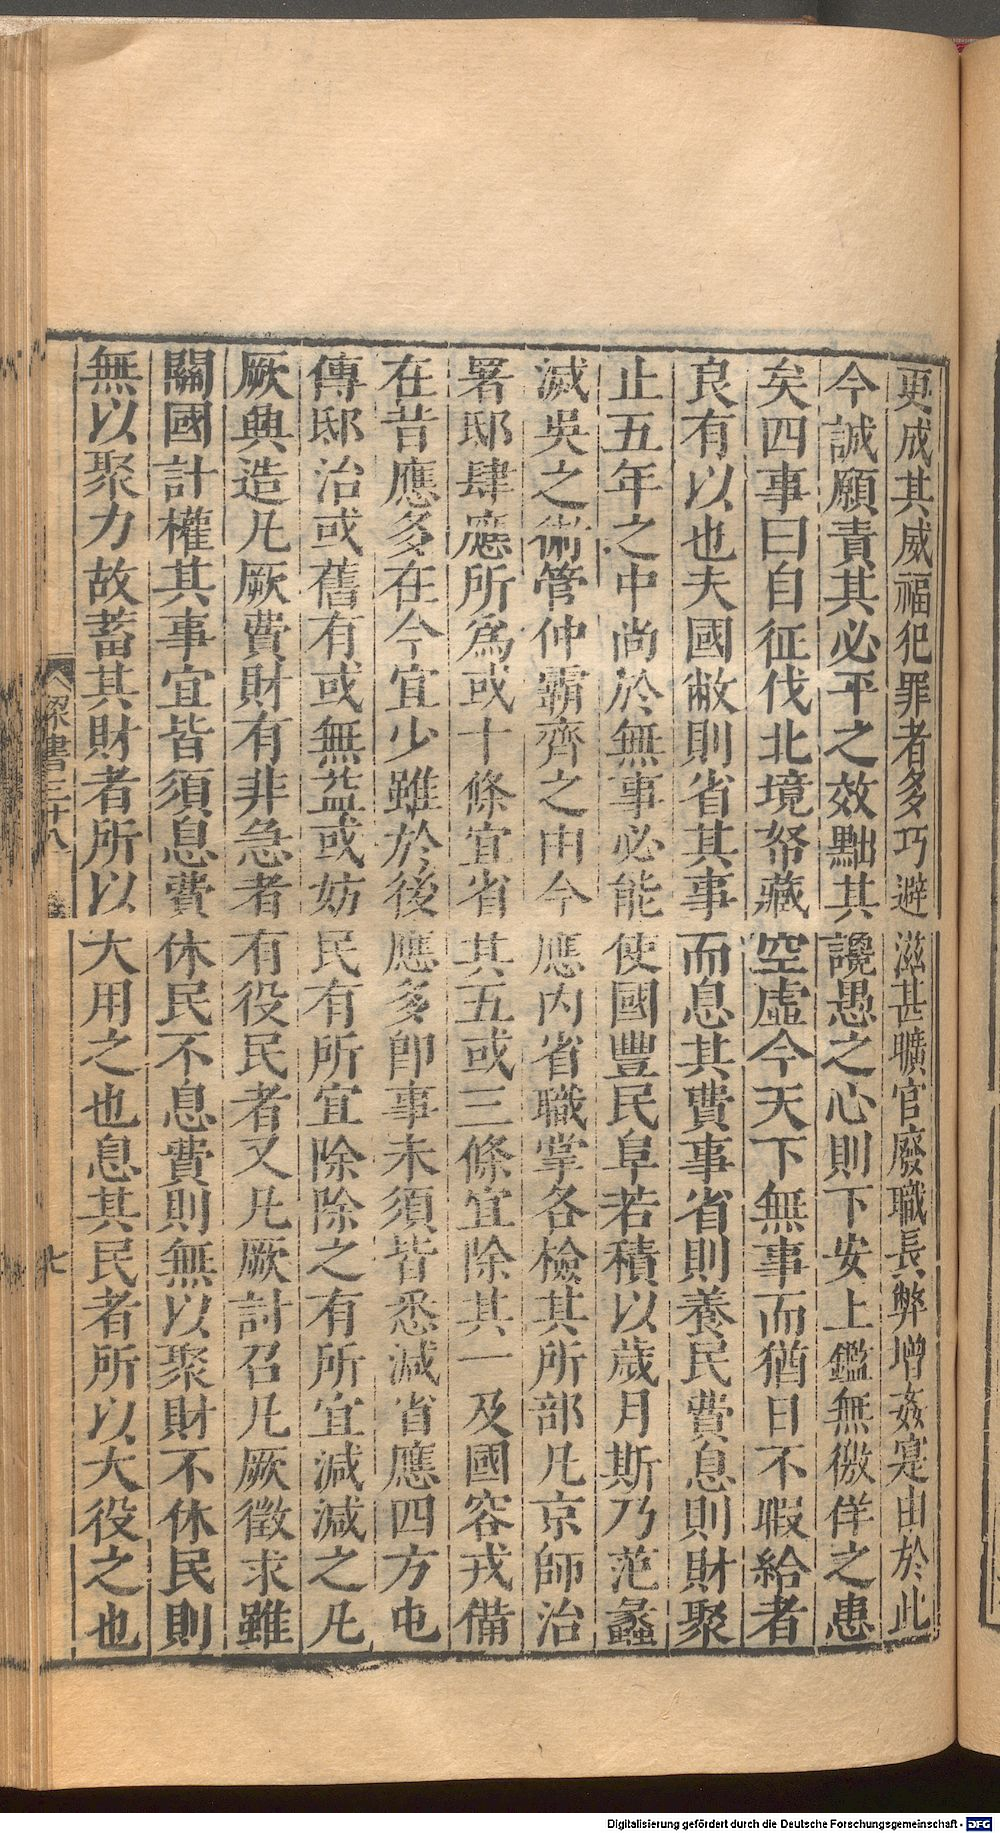 更成其威福犯罪者多巧避滋甚曠官廢職長弊增姦寔由於此
今誠願責其必平之效黜其讒愚之心則下安上鑑無徼倖之患
矣四事曰自征伐北境帑藏空虛今天下無事而猶日不暇給者
良有以也夫國敝則省其事而息其費事省則養民費息則財聚
止五年之中尚於無事必能使國豐民阜若積以歲月斯乃范蠡
滅吳之術管仲霸齊之由今應內省職掌各檢其所部凡京師治
署邸肆應所爲或十條宜省其五或三條宜除其一及國容戎備
在昔應多在今宜少雖於後應多卽事未須皆悉減省應四方屯
傳邸治或舊有或無益或妨民有所宜除除之有所宜減減之凡
厥興造凡厥費財有非急者有役民者又凡厥討召凡厥徵求雖
關國計權其事宜皆須息費休民不息費則無以聚財不休民則
無以聚力故蓄其財者所以大用之也息其民者所以大役之也
梁書三十八
七
Digitalisierung gefördert durch die Deutsche Forschungsgemeinschaft - DFG